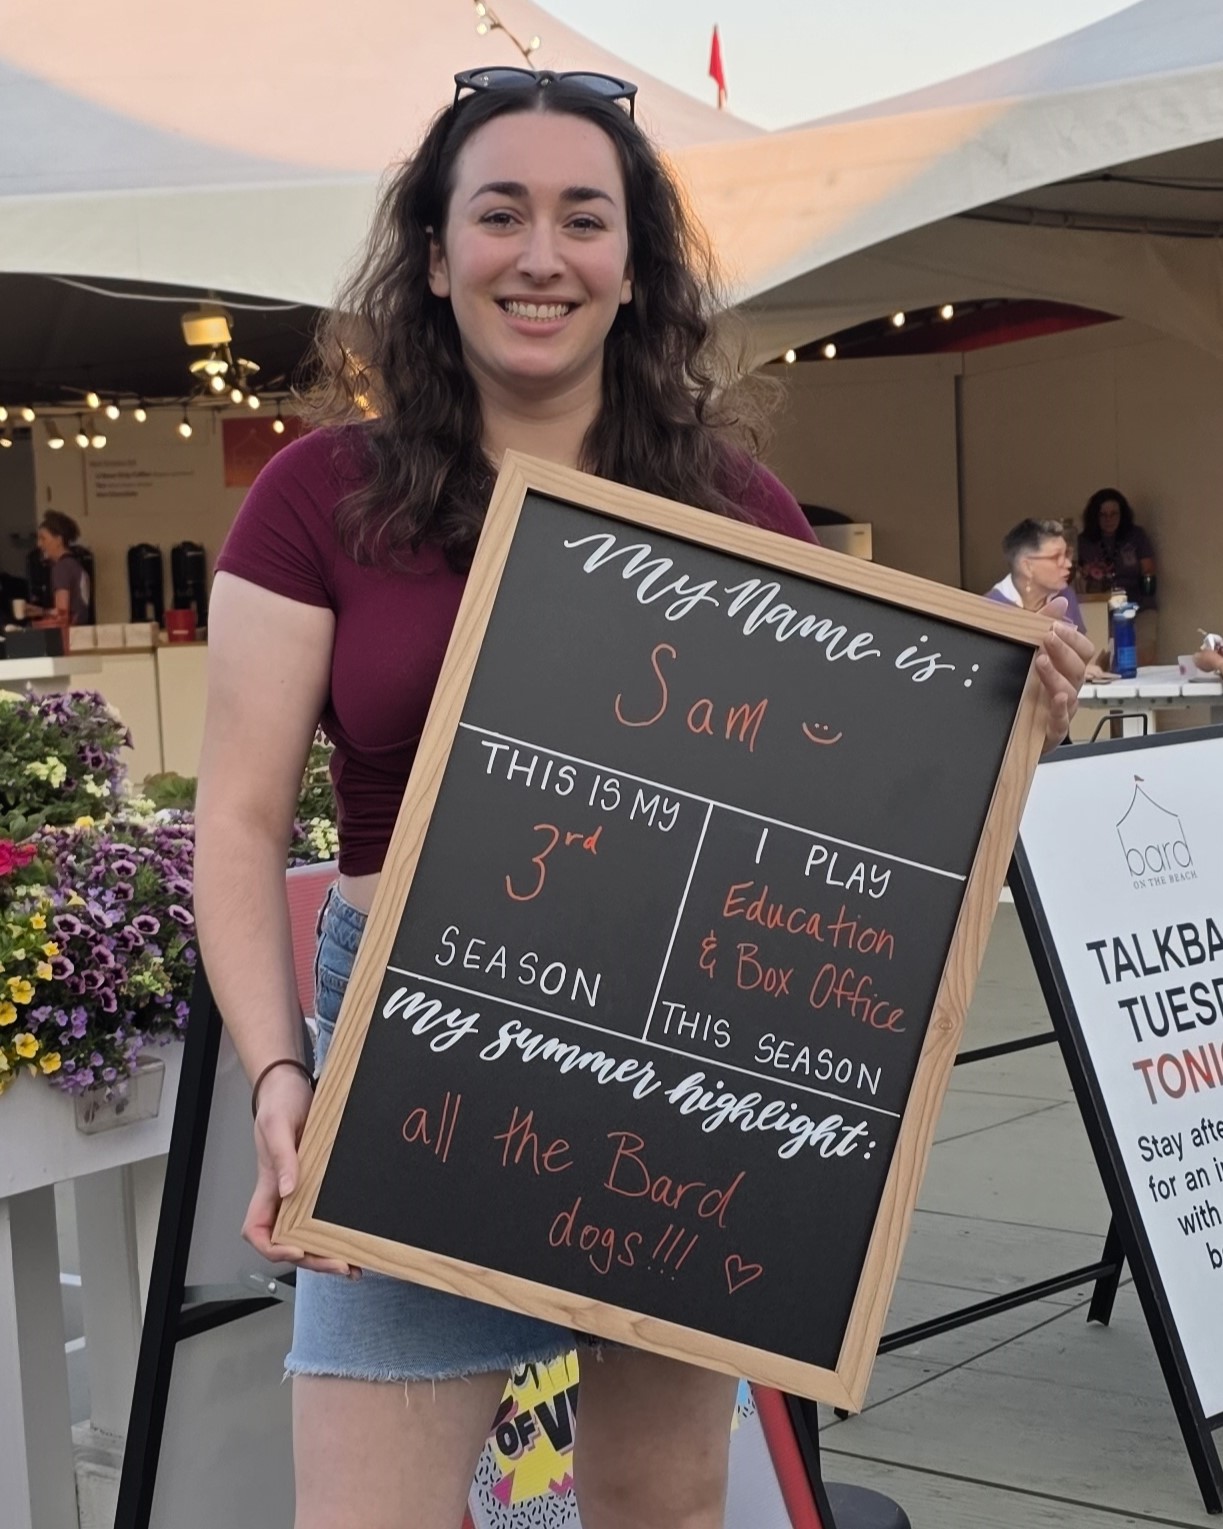 My Name is:
Sam
THIS IS MY
3rd
SEASON
I PLAY
Education
& Box Office
THIS SEASON
My summer highlight:
all the Bard
dogs!!!
bard
ON THE BEACH
TALKBA
TUESD
TONI
Stay afte
for an i
with
b
OF V